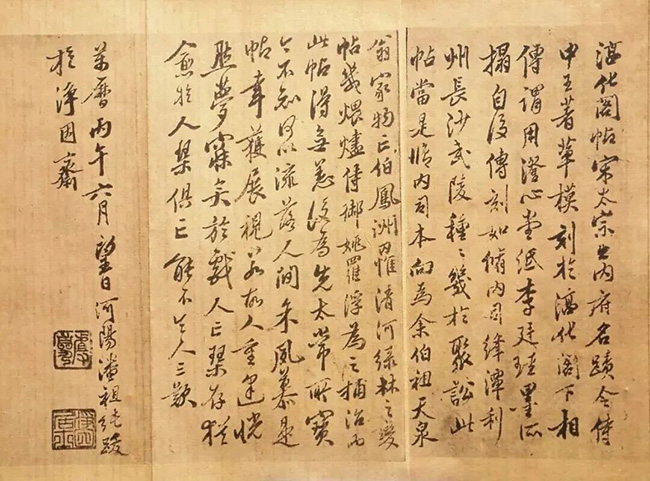 淳化閣帖宋太宗出內府名蹟令侍
中王著草模刻於淳化閣下相
傳謂用澄心堂紙李廷珪墨所
搨自後傳刻如脩內司絳潭利
州長沙武陵種〻幾於聚訟此
帖當是脩內司本向為余伯祖天泉
翁家物亡伯鳳洲內惟清河綠林之變
帖幾煨燼侍御姚羅浮為之補治而
此帖得無恙後為先太常所寶
今不知何以流落人間朱風慕是
帖幸獲展視若故人重逢恍
然夢寐矣於戲人亡琴存猶
愈於人琴俱亡能不令人三歎
萬曆丙午六月望日河陽潘祖純跋
於淨因齋